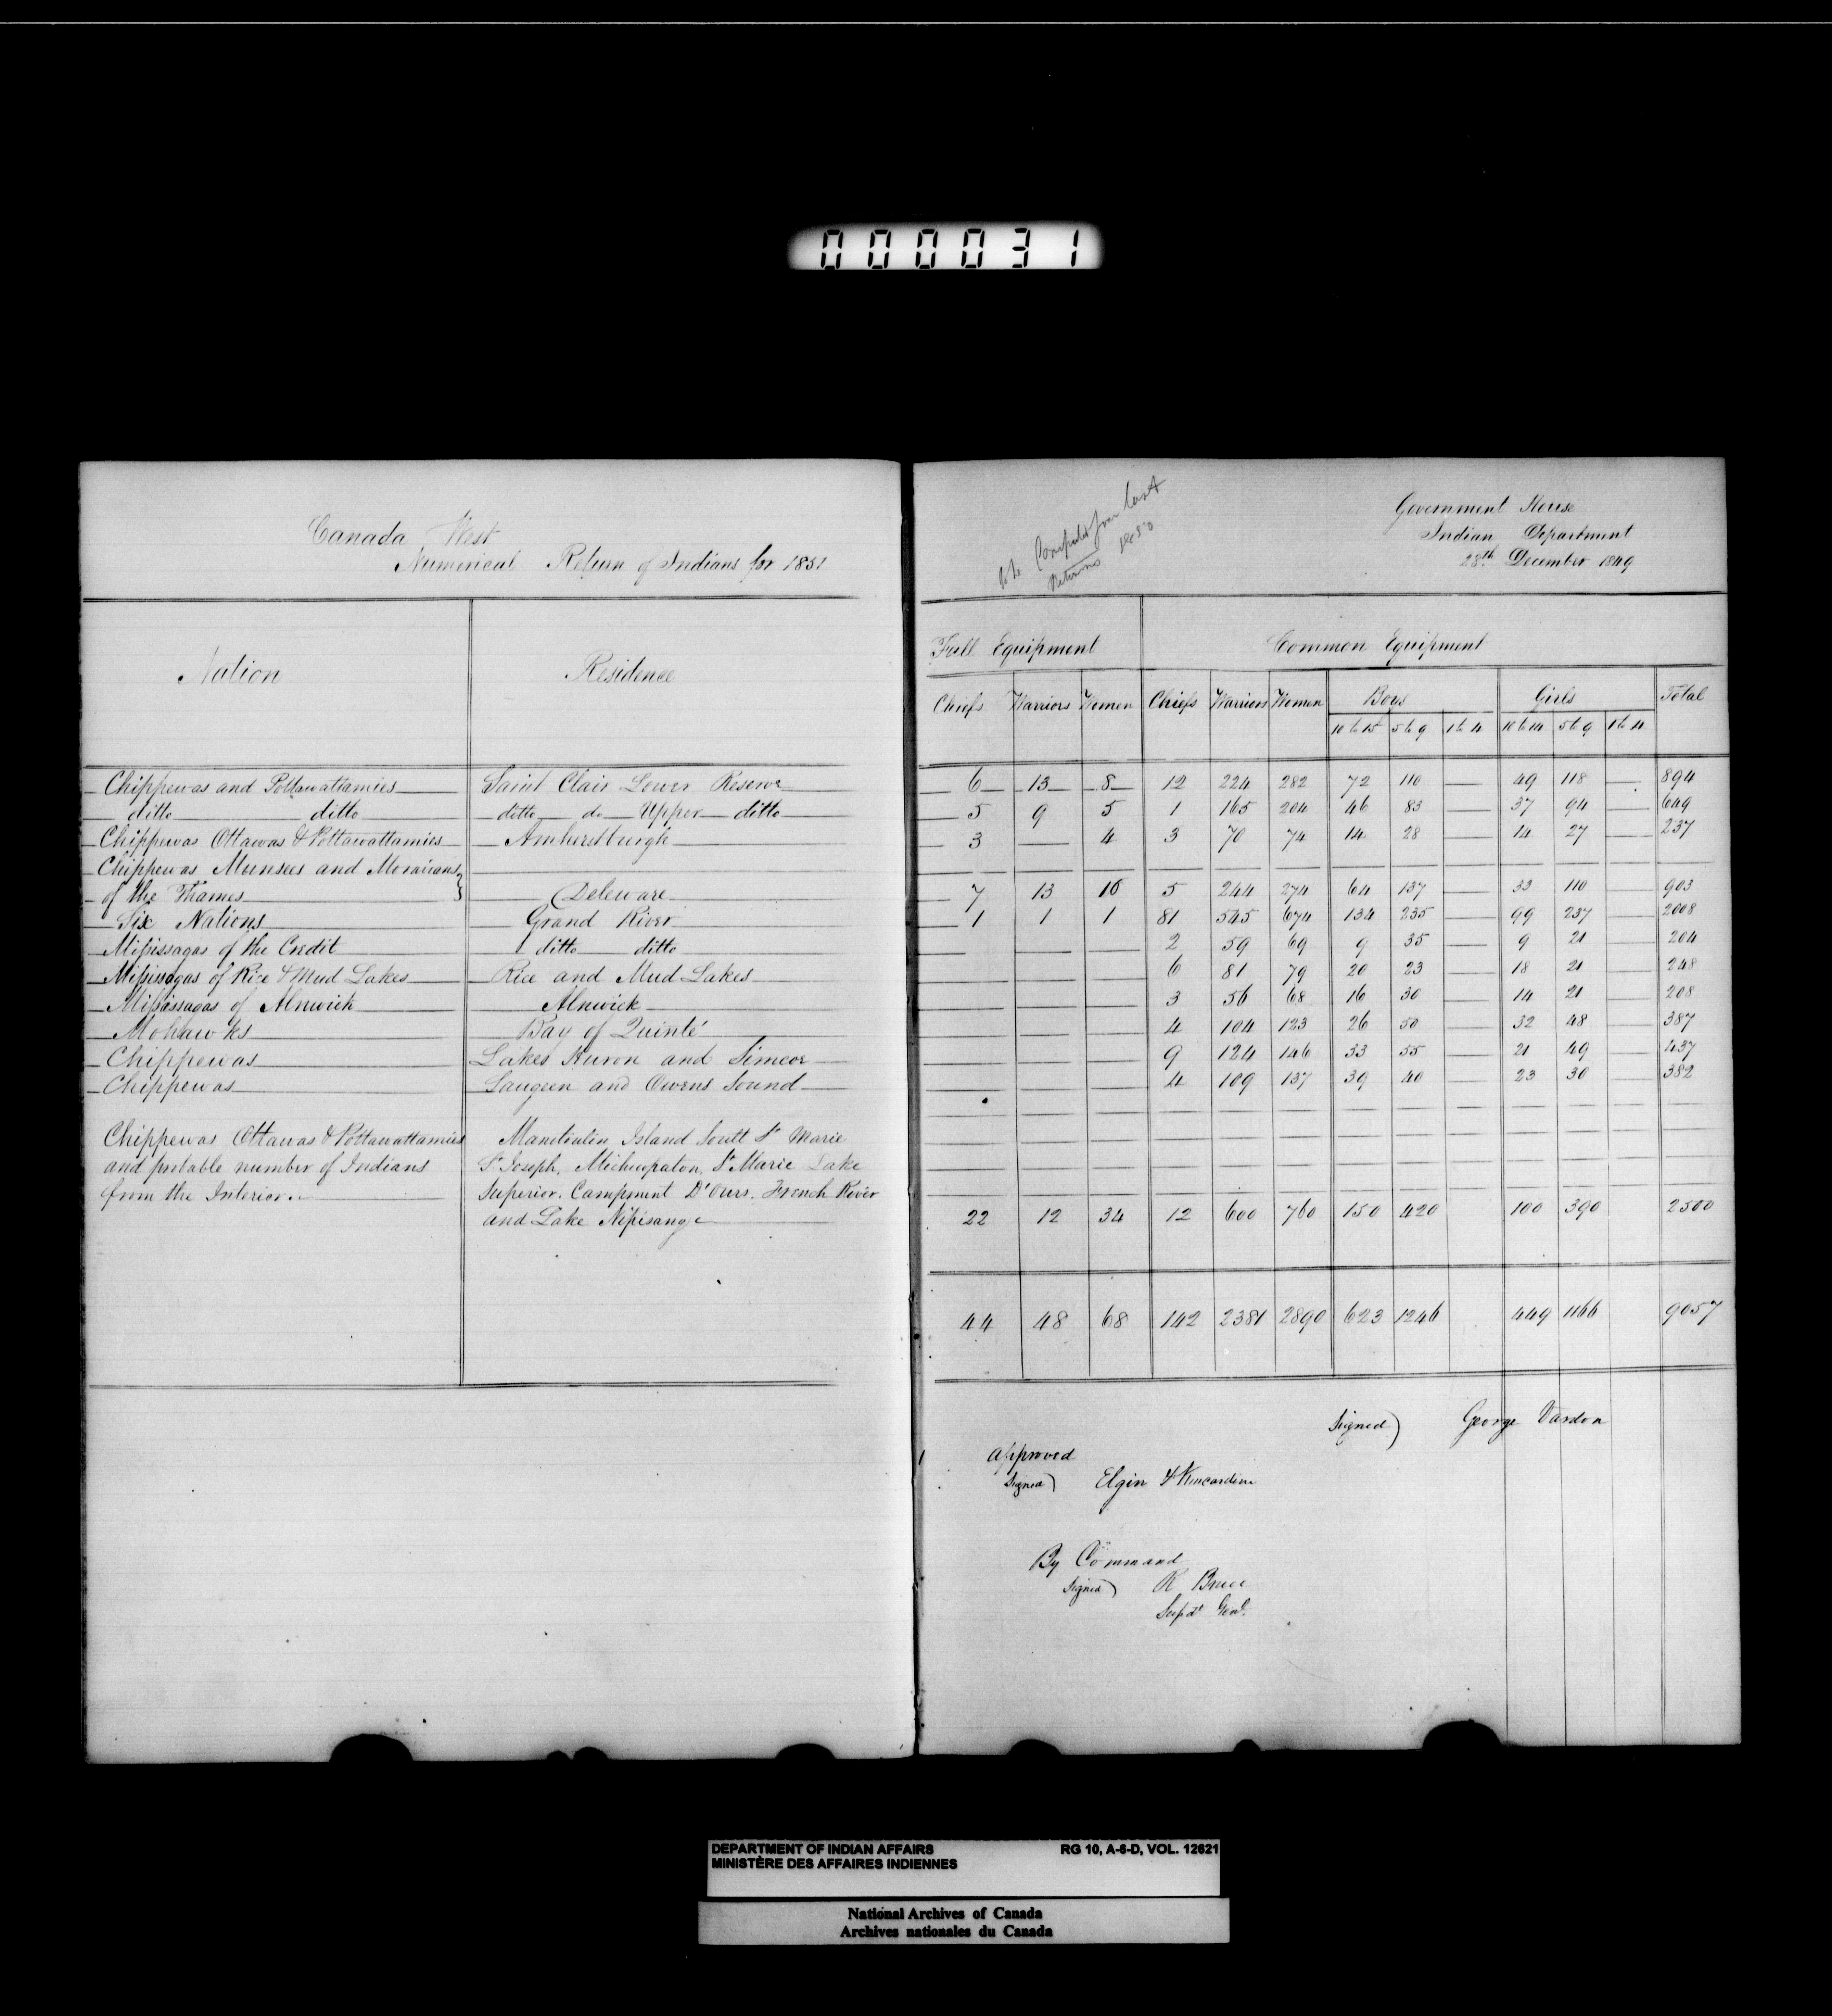 000031
Canada West
Numerical Return of Indians for 1851
Nation Residence
Chippewas and Pottawattamies Saint Clair Lower Reserve
ditto ditto ditto do Upper ditto
Chippewas Ottawas & Pottawattamies Amherstburgh
Chippewas Munsees and Moraians
of the Thames Deleware
Six Nations Grand River
Missisagas of the Credit ditto ditto
Missisagas of Rice & Mud Lakes Rice and Mud Lakes
Missisagas of Alnwick Alnwick
Mohawks Bay of Quinté
Chippewas Lakes Huron and Simcoe
Chippewas Saugeen and Owens Sound
Chippewas Ottawas & Pottawattamies Manitoulin Island Soult St Marie
and probable number of Indians St Joseph, Michiopaton, St Marie Lake
from the Interior Superior. Campment D'Ours. French River
and Lake Nipisange
to be Computed from last
Returns
Government House
Indian Department
28th December 1849
Full Equipment Common Equipment
Chiefs Warriors Women Chiefs Warriors Women Boys Girls Total
10 to 15 5 to 9 1 to 4 10 to 14 5 to 9 1 to 4
6 13 8 12 224 282 72 110 49 118 894
5 9 5 1 165 204 46 83 37 94 649
3 4 3 70 74 14 28 14 27 237
7 13 16 5 244 274 64 137 33 110 903
1 1 1 81 545 674 134 235 99 237 2008
2 59 69 9 35 9 21 204
6 81 79 20 23 18 21 248
3 56 68 16 30 14 21 208
4 104 123 26 50 32 48 387
9 124 146 33 55 21 49 437
4 109 137 39 40 23 30 382
22 12 34 12 600 760 150 420 100 390 2500
44 48 68 142 2381 2890 623 1246 449 1166 9057
Signed) George Vardon
Approved
Signed) Elgin & Kincardine
By Command
Signed) R Bruce
Supdt Genl.
DEPARTMENT OF INDIAN AFFAIRS RG 10, A-6-D, VOL. 12621
MINISTÈRE DES AFFAIRES INDIENNES
National Archives of Canada
Archives nationales du Canada